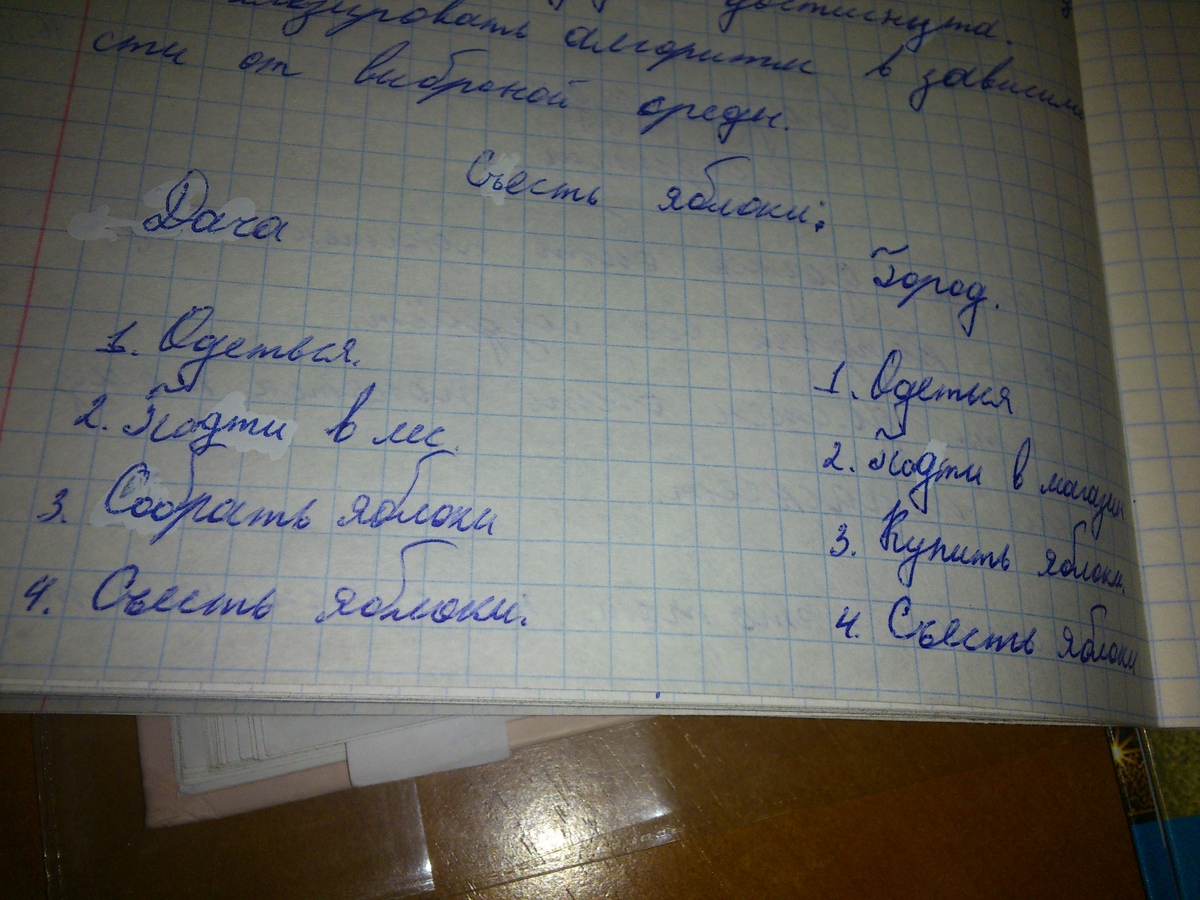 достигнута.
алгоритм в зависимо
сти от выбраной среды.
Съесть яблоки:
Дача
1. Одеться.
2. Подти в лес.
3. Собрать яблоки
4. Съесть яблоки.
Город.
1. Одеться
2. Подти в магазин
3. Купить яблоки.
4. Съесть яблоки